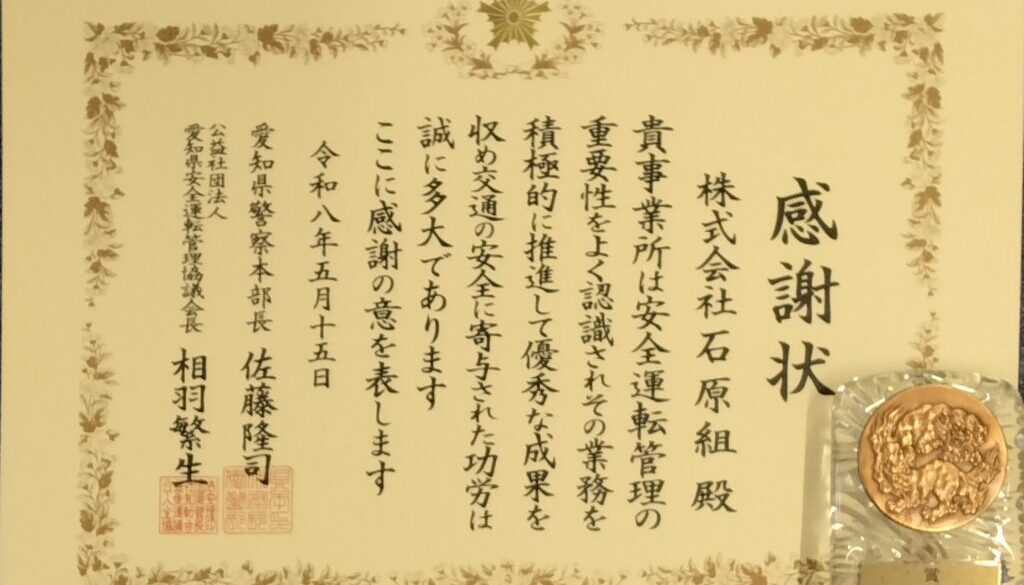 感謝状
株式会社石原組 殿
貴事業所は安全運転管理の
重要性をよく認識されその業務を
積極的に推進して優秀な成果を
収め交通の安全に寄与された功労は
誠に多大であります
ここに感謝の意を表します
令和八年五月十五日
愛知県警察本部長 佐藤隆司
公益社団法人
愛知県安全運転管理協議会長 相羽繁生
賞